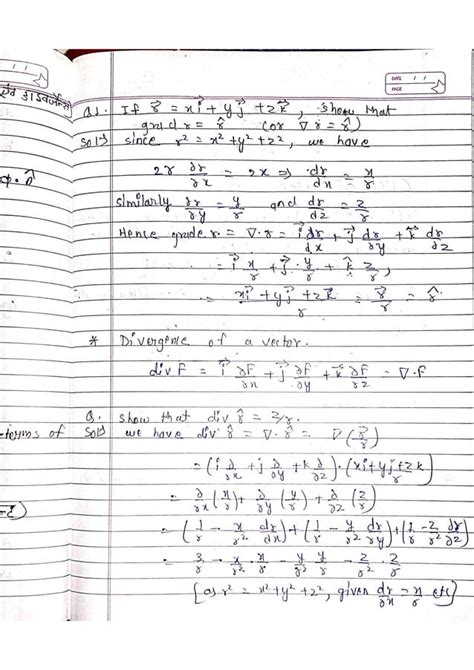 एवं डाइवर्जेन्स
DATE
PAGE
Q1. If r⃗ = xi⃗ + yj⃗ + zk⃗, show that
grad r = r̂ (or ∇r = r̂)
Sol⇒ since r² = x² + y² + z², we have
2r ∂r/∂x = 2x ⇒ dr/dx = x/r
Similarly ∂r/∂y = y/r and dr/dz = z/r
Hence grade r = ∇·r = i⃗ dr/dx + j⃗ dr/∂y + k⃗ dr/∂z
= i⃗ x/r + j⃗·y/r + k⃗ z/r,
= xi⃗ + yj⃗ + zk⃗/r = r⃗/r = r̂
* Divergence of a vector.
div F = i⃗ ∂F/∂x + j⃗ ∂F/∂y + k⃗ ∂F/∂z = ∇·F
Q. show that div r̂ = 2/r.
-terms of
Sol⇒ we have div r̂ = ∇·r̂ = ∇(r⃗/r)
= (i ∂/∂x + j ∂/∂y + k ∂/∂z)·(xi + yj + zk/r)
= ∂/∂x (x/r) + ∂/∂y (y/r) + ∂/∂z (z/r)
= (1/r - x/r² dr/∂x) + (1/r - y/r² dr/∂y) + (1/r - z/r² dr/∂z)
= 3/r - x/r² x/r - y/r² y/r - z/r² · z/r
[as r² = x² + y² + z², given dr/∂x = x/r etc]